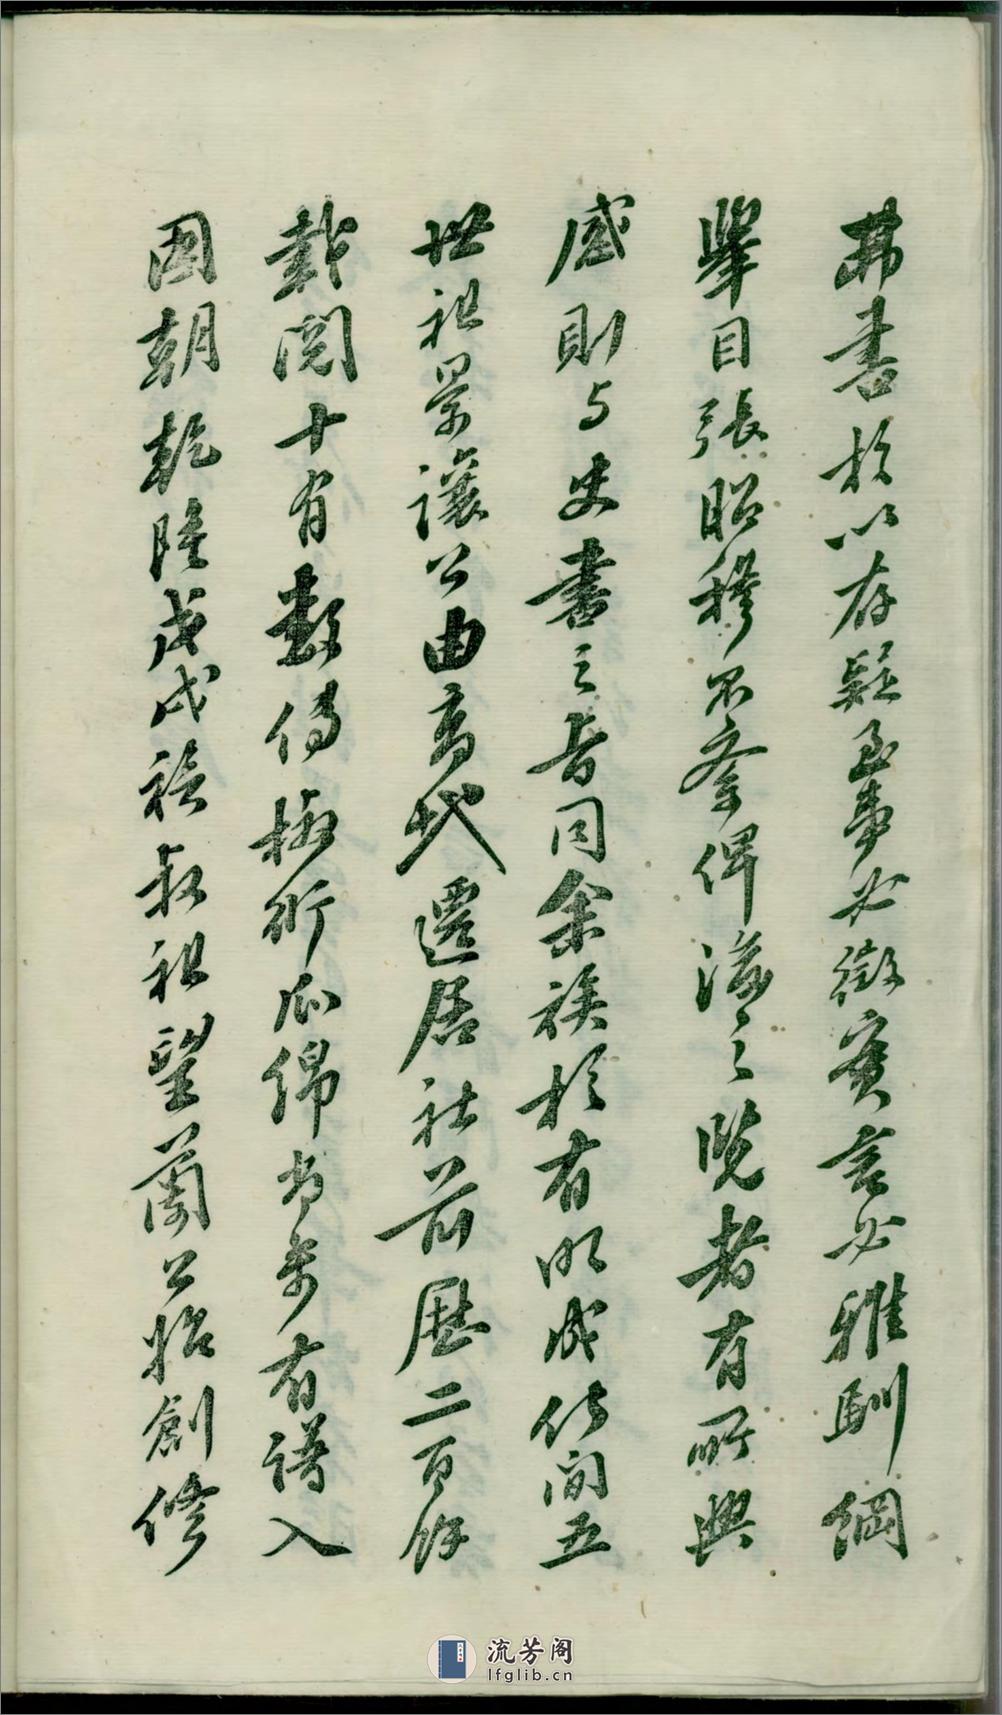 弗書於以存疑至事必徵實言必雅馴綱
舉目張昭穆不紊俾後之覧者有所興
感則与史書之旨同余族於有明成化間五
世祖景讓公由高代遷居社前歷二百餘
載閱十有數傳椒衍瓜綿尚未有譜入
國朝乾隆戊戌裕叔祖望蘭公始創修
流芳阁
lfglib.cn